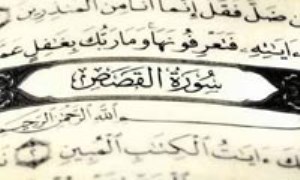 ضَلَّ فَقُلْ إِنَّمَا أَنَا۠ مِنَ ٱلْمُنذِرِينَ
ءَايَٰتِهِۦ فَتَعْرِفُونَهَا وَمَا رَبُّكَ بِغَٰفِلٍ عَمَّا
سُورَةُ القَصَصِ
ٱللَّهِ ٱلرَّحْمَٰنِ ٱلرَّحِيمِ
ءَايَٰتُ ٱلْكِتَٰبِ ٱلْمُبِينِ ٢